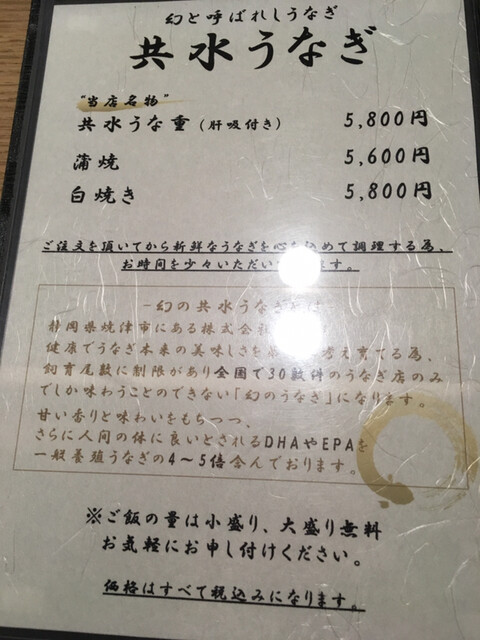 幻と呼ばれしうなぎ
共水うなぎ
"当店名物"
共水うな重(肝吸付き) 5,800円
蒲焼 5,600円
白焼き 5,800円
ご注文を頂いてから新鮮なうなぎを心を込めて調理する為、
お時間を少々いただいます。
－幻の共水うなぎは
静岡県焼津市にある株式会
健康でうなぎ本来の美味しさを考え育てる為、
飼育尾数に制限があり全国で30数件のうなぎ店のみ
でしか味わうことのできない「幻のうなぎ」になります。
甘い香りと味わいをもちつつ、
さらに人間の体に良いとされるDHAやEPAを
一般養殖うなぎの4～5倍含んでおります。
※ご飯の量は小盛り、大盛り無料
お気軽にお申し付けください。
価格はすべて税込みになります。